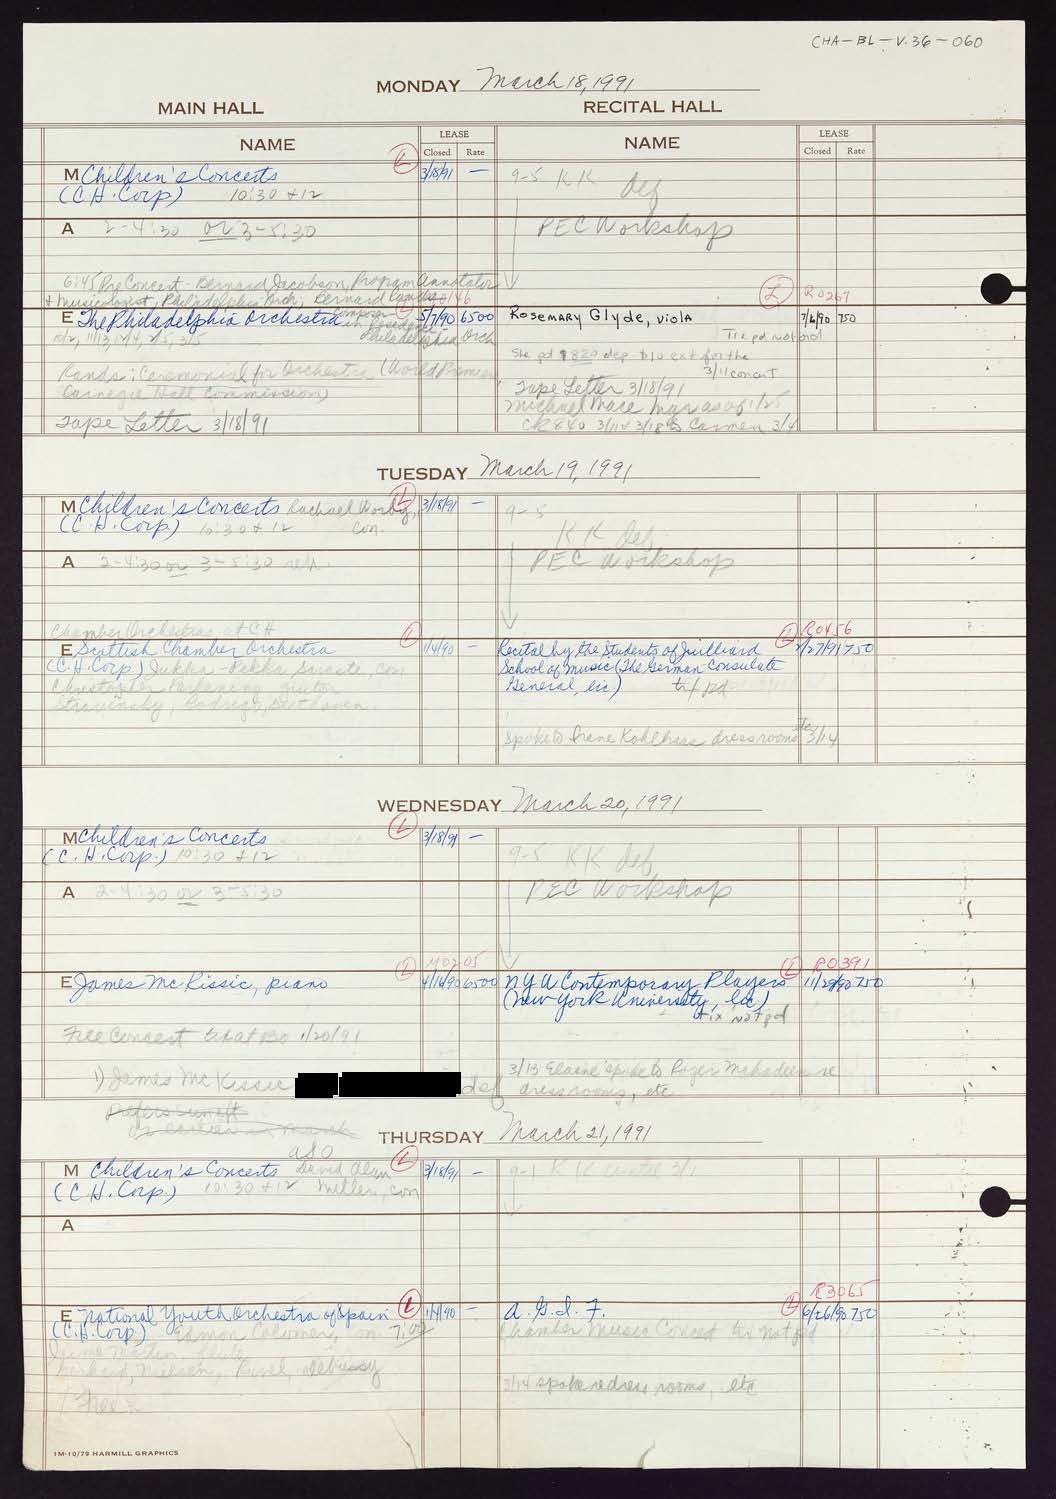 CHA-BL-V.36-060
MONDAY March 18, 1991
MAIN HALL
RECITAL HALL
NAME
LEASE
Closed Rate
NAME
LEASE
Closed Rate
M Children's Concerts
L
3/18/91 —
(C.H. Corp) 10:30 + 12
9-5 KK def
PEC Workshop
A 2-4:30 or 3-5:30
6:45 PreConcert - Bernard Jacobson, Program Annotator
+ Musicologist, Philadelphia Orch, Bernard Rands
composer in residence Philadelphia Orch
E The Philadelphia Orchestra
5/7/90 6500
10/2, 11/13, 12/4, 2/5, 3/5
Rands: Ceremonial for Orchestra (World Premiere
Carnegie Hall Commission)
Tape Letter 3/18/91
L R0267
Rosemary Glyde, viola
7/6/90 750
Tix pd not pd
She pd $820 dep $10 ext for the
3/11 concert
Tape Letter 3/18/91
Michael Mace Mgr as of 1/25
CK 840 3/11 & 3/18 to Carmen 3/4
TUESDAY March 19, 1991
M Children's Concerts Rachael Worby,
L
3/18/91 —
(C.H. Corp) 10:30 + 12 Con.
9-5
KK def
PEC Workshop
A 2-4:30 or 3-5:30 reh.
Chamber Orchestras at CH
E Scottish Chamber Orchestra
L
1/4/90 —
(C.H. Corp) Jukka-Pekka Saraste Con
Christopher Parkening guitar
Stravinsky, Rodrigo, Beethoven
L R0456
Recital by the Students of Juilliard
2/27/91 750
School of Music (The German Consulate
General, lic) tix pd
Spoke to Irene Kohlhaas dress rooms etc 3/14
WEDNESDAY March 20, 1991
M Children's Concerts
L
3/18/91 —
(C.H. Corp.) 10:30 + 12
9-5 KK def
PEC Workshop
A 2-4:30 or 3-5:30
L M0205
E James McKissic, piano
4/16/90 6500
Free Concert tix at BO 1/20/91
1) James McKissic
def
prefers
or earlier in March
L R0391
NYU Contemporary Players
11/29/90 750
(New York University, lic)
tix not pd
3/13 Elaine spoke to Roger Mahadeen re
dress rooms, etc
THURSDAY March 21, 1991
aso
M Children's Concerts David Alan
L
3/18/91 —
(C.H. Corp.) 10:30 + 12 Miller, con
9-1 KK
A
E National Youth Orchestra of Spain
L
1/4/90 —
(C.H. Corp) Edmon Colomer, Con.
Jaime Martin flute
Nielsen, Ravel, Debussy
R3065
L
A.G.I.F.
6/26/90 750
Chamber Music Concert tix not pd
3/14 spoke re dress rooms, etc
1M-10/79 HARMILL GRAPHICS